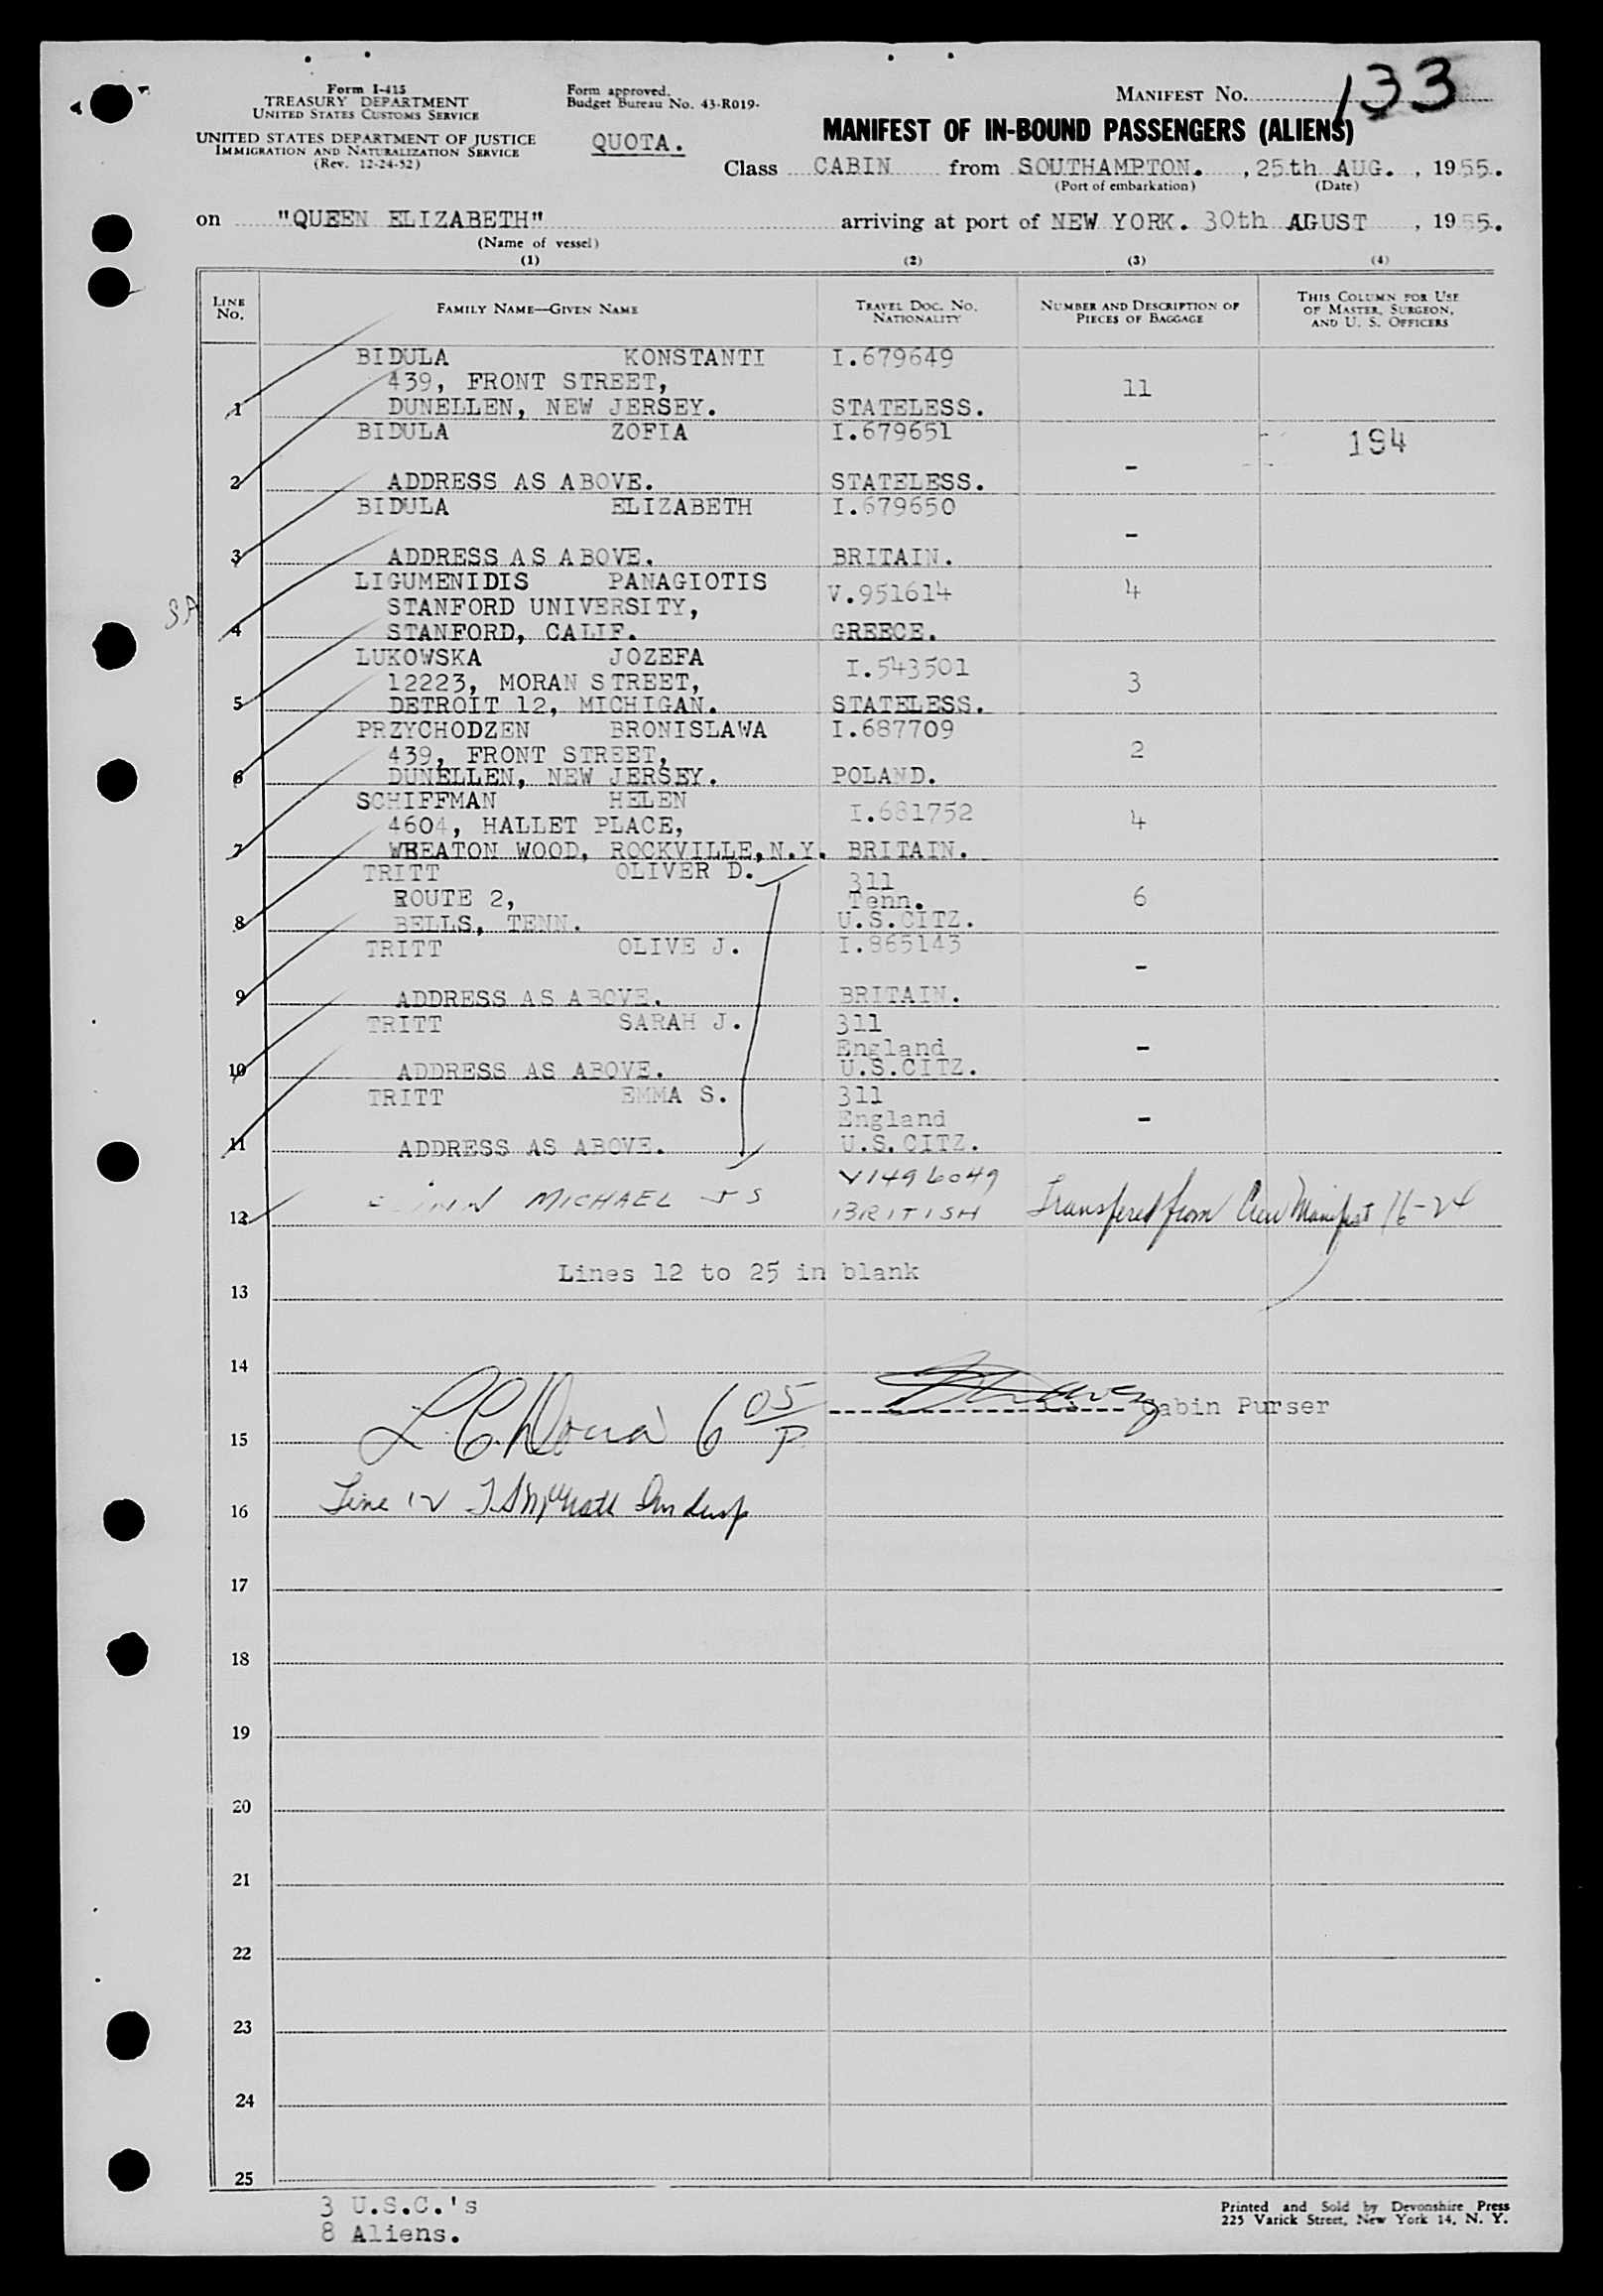 133
Form I-415
TREASURY DEPARTMENT
UNITED STATES CUSTOMS SERVICE
UNITED STATES DEPARTMENT OF JUSTICE
IMMIGRATION AND NATURALIZATION SERVICE
(Rev. 12-24-52)
Form approved.
Budget Bureau No. 43-R019.
QUOTA.
MANIFEST NO.
MANIFEST OF IN-BOUND PASSENGERS (ALIENS)
Class CABIN from SOUTHAMPTON. , 25th AUG. , 1955.
(Port of embarkation) (Date)
on "QUEEN ELIZABETH" arriving at port of NEW YORK. 30th AGUST , 1955.
(Name of vessel)
(1) (2) (3) (4)
LINE NO. FAMILY NAME—GIVEN NAME TRAVEL DOC. NO. NATIONALITY NUMBER AND DESCRIPTION OF PIECES OF BAGGAGE THIS COLUMN FOR USE OF MASTER, SURGEON, AND U. S. OFFICERS
BIDULA KONSTANTI I.679649
439, FRONT STREET, 11
1 DUNELLEN, NEW JERSEY. STATELESS.
BIDULA ZOFIA I.679651 194
-
2 ADDRESS AS ABOVE. STATELESS.
BIDULA ELIZABETH I.679650
-
3 ADDRESS AS ABOVE. BRITAIN.
LIGUMENIDIS PANAGIOTIS V.951614 4
SA STANFORD UNIVERSITY,
4 STANFORD, CALIF. GREECE.
LUKOWSKA JOZEFA I.543501
12223, MORAN STREET, 3
5 DETROIT 12, MICHIGAN. STATELESS.
PRZYCHODZEN BRONISLAWA I.687709
439, FRONT STREET, 2
6 DUNELLEN, NEW JERSEY. POLAND.
SCHIFFMAN HELEN I.681752
4604, HALLET PLACE, 4
7 WHEATON WOOD, ROCKVILLE, N.Y. BRITAIN.
TRITT OLIVER D. 311
ROUTE 2, Tenn. 6
8 BELLS, TENN. U.S.CITZ.
TRITT OLIVE J. I.865143
-
9 ADDRESS AS ABOVE. BRITAIN.
TRITT SARAH J. 311
England -
10 ADDRESS AS ABOVE. U.S.CITZ.
TRITT EMMA S. 311
England -
11 ADDRESS AS ABOVE. U.S.CITZ.
V1496049
12 MICHAEL BRITISH Transfered from Crew Manifest 16-24
Lines 12 to 25 in blank
13
14
Cabin Purser
15 6 05 P
Line 12
16
17
18
19
20
21
22
23
24
25
3 U.S.C.'s
8 Aliens.
Printed and Sold by Devonshire Press
225 Varick Street, New York 14, N. Y.